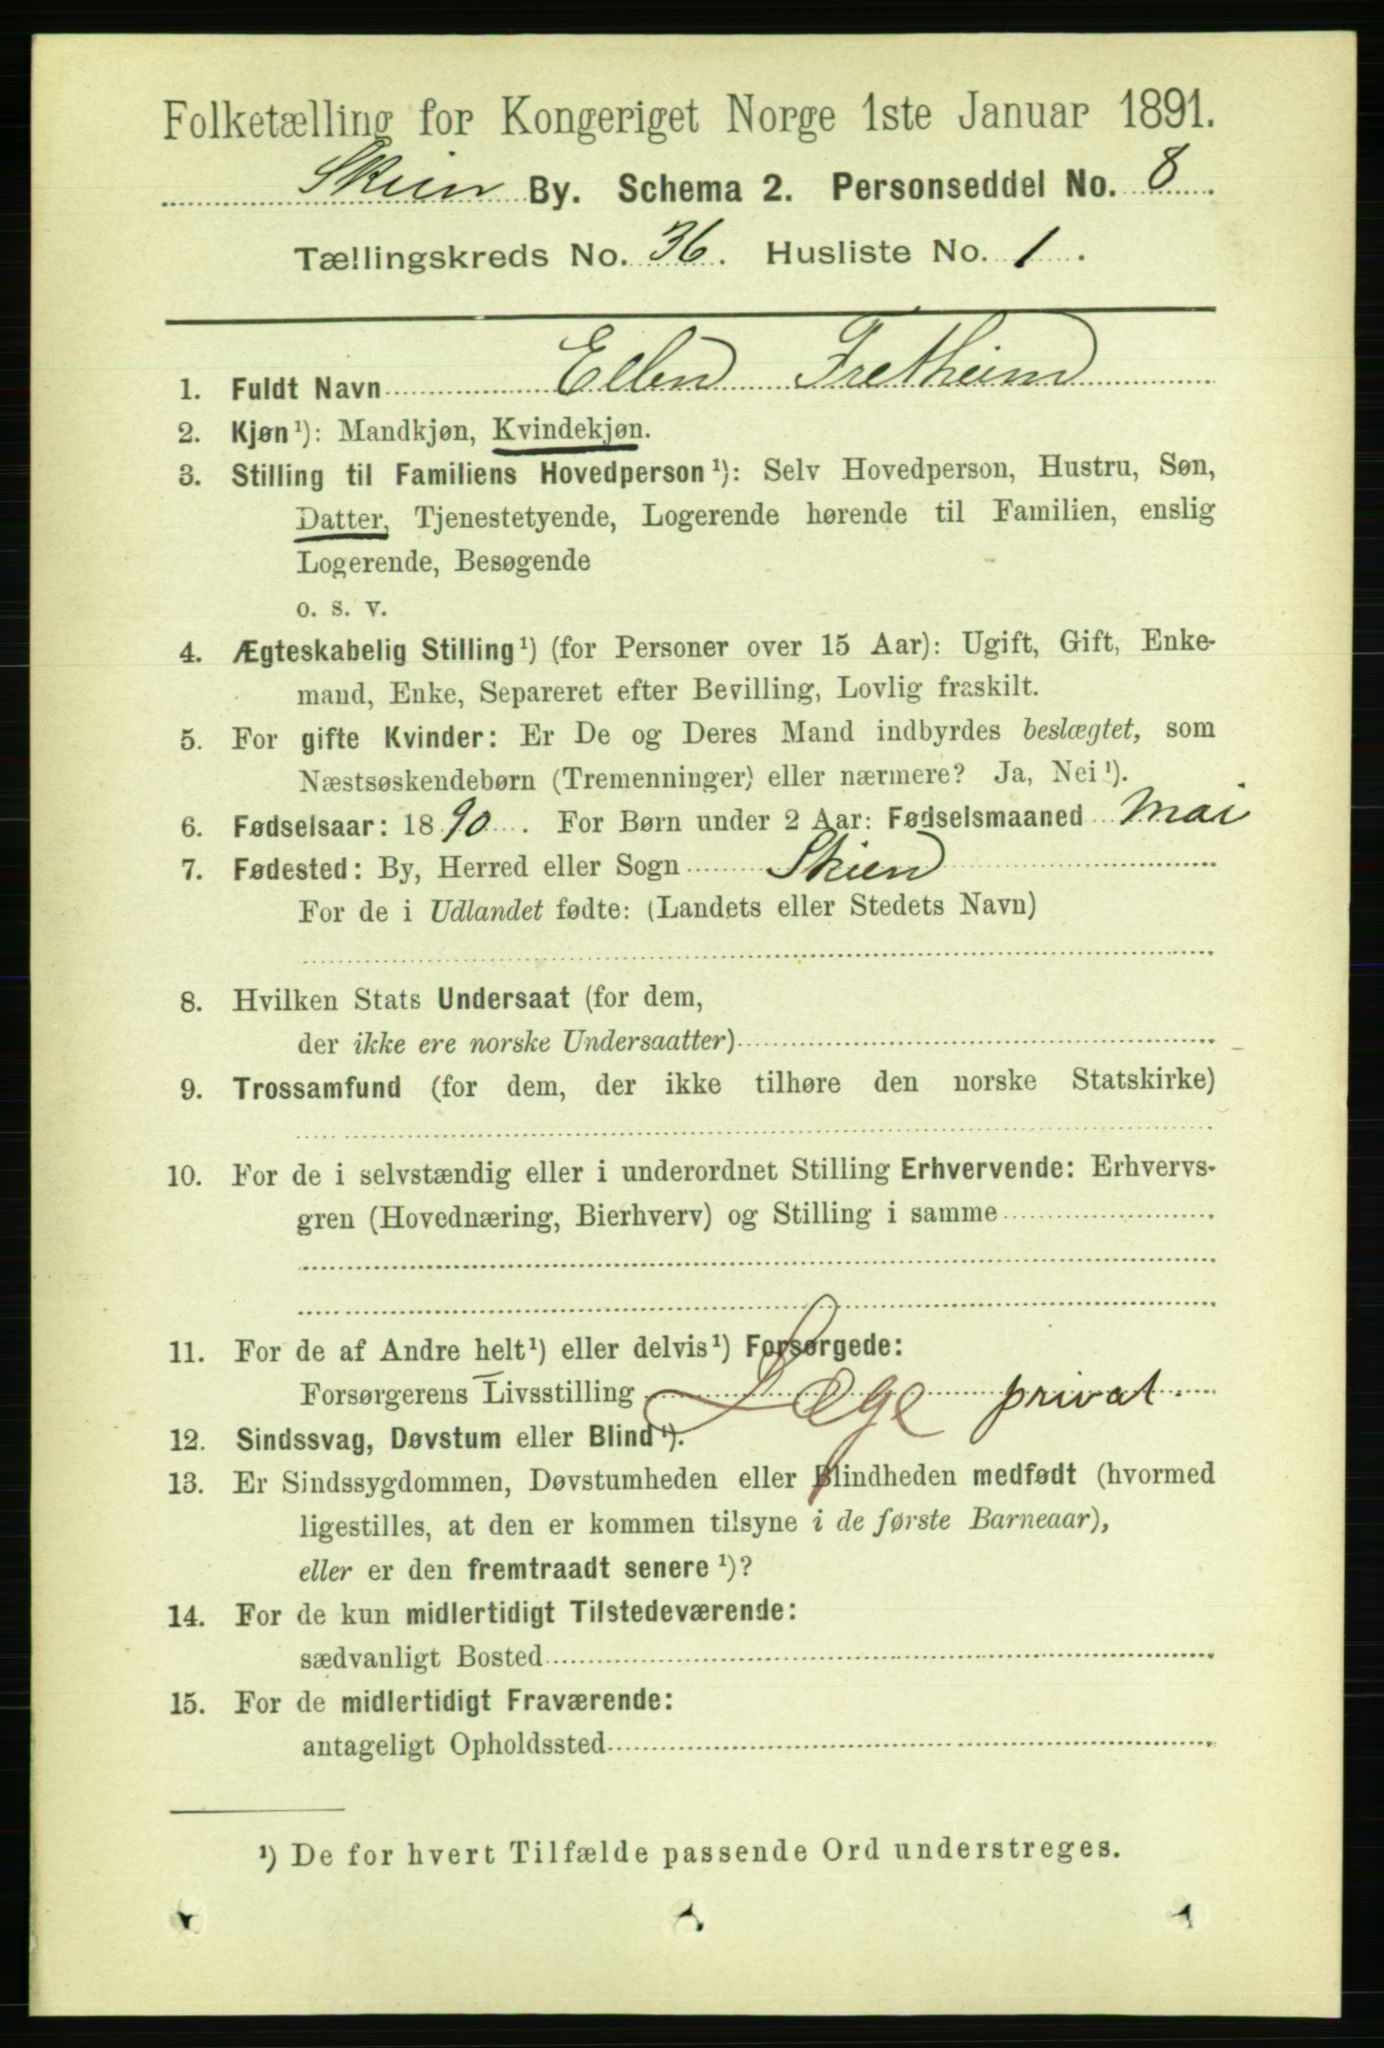 Folketælling for Kongeriget Norge 1ste Januar 1891.
Skien By. Schema 2. Personseddel No. 8.
Tællingskreds No. 36. Husliste No. 1.
1. Fuldt Navn Ellen Fretheim
2. Kjøn¹): Mandkjøn, Kvindekjøn.
3. Stilling til Familiens Hovedperson¹): Selv Hovedperson, Hustru, Søn,
Datter, Tjenestetyende, Logerende hørende til Familien, enslig
Logerende, Besøgende
o. s. v.
4. Ægteskabelig Stilling¹) (for Personer over 15 Aar): Ugift, Gift, Enke-
mand, Enke, Separeret efter Bevilling, Lovlig fraskilt.
5. For gifte Kvinder: Er De og Deres Mand indbyrdes beslægtet, som
Næstsøskendebørn (Tremenninger) eller nærmere? Ja, Nei¹).
6. Fødselsaar: 1890. For Børn under 2 Aar: Fødselsmaaned Mai
7. Fødested: By, Herred eller Sogn Skien
For de i Udlandet fødte: (Landets eller Stedets Navn)
8. Hvilken Stats Undersaat (for dem,
der ikke ere norske Undersaatter)
9. Trossamfund (for dem, der ikke tilhøre den norske Statskirke)
10. For de i selvstændig eller i underordnet Stilling Erhvervende: Erhvervs-
gren (Hovednæring, Bierhverv) og Stilling i samme
11. For de af Andre helt¹) eller delvis¹) Forsørgede:
Forsørgerens Livsstilling Læge privat.
12. Sindssvag, Døvstum eller Blind¹).
13. Er Sindssygdommen, Døvstumheden eller Blindheden medfødt (hvormed
ligestilles, at den er kommen tilsyne i de første Barneaar),
eller er den fremtraadt senere¹)?
14. For de kun midlertidigt Tilstedeværende:
sædvanligt Bosted
15. For de midlertidigt Fraværende:
antageligt Opholdssted
¹) De for hvert Tilfælde passende Ord understreges.